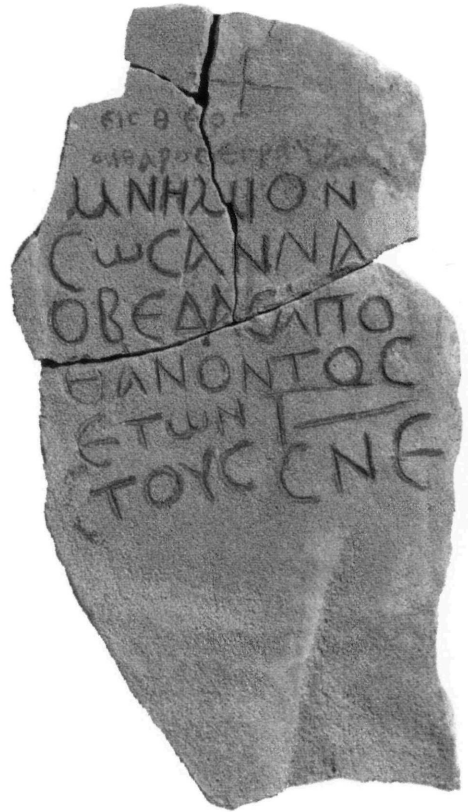 ΕΙC ΘΕΟC
ΜΝΗΜΙΟΝ
CωCΑΝΝΑ
ΟΒΕΔΑC ΑΠΟ
ΘΑΝΟΝΤΟC
ΕΤωΝ Γ
ΕΤΟΥC CΝΕ